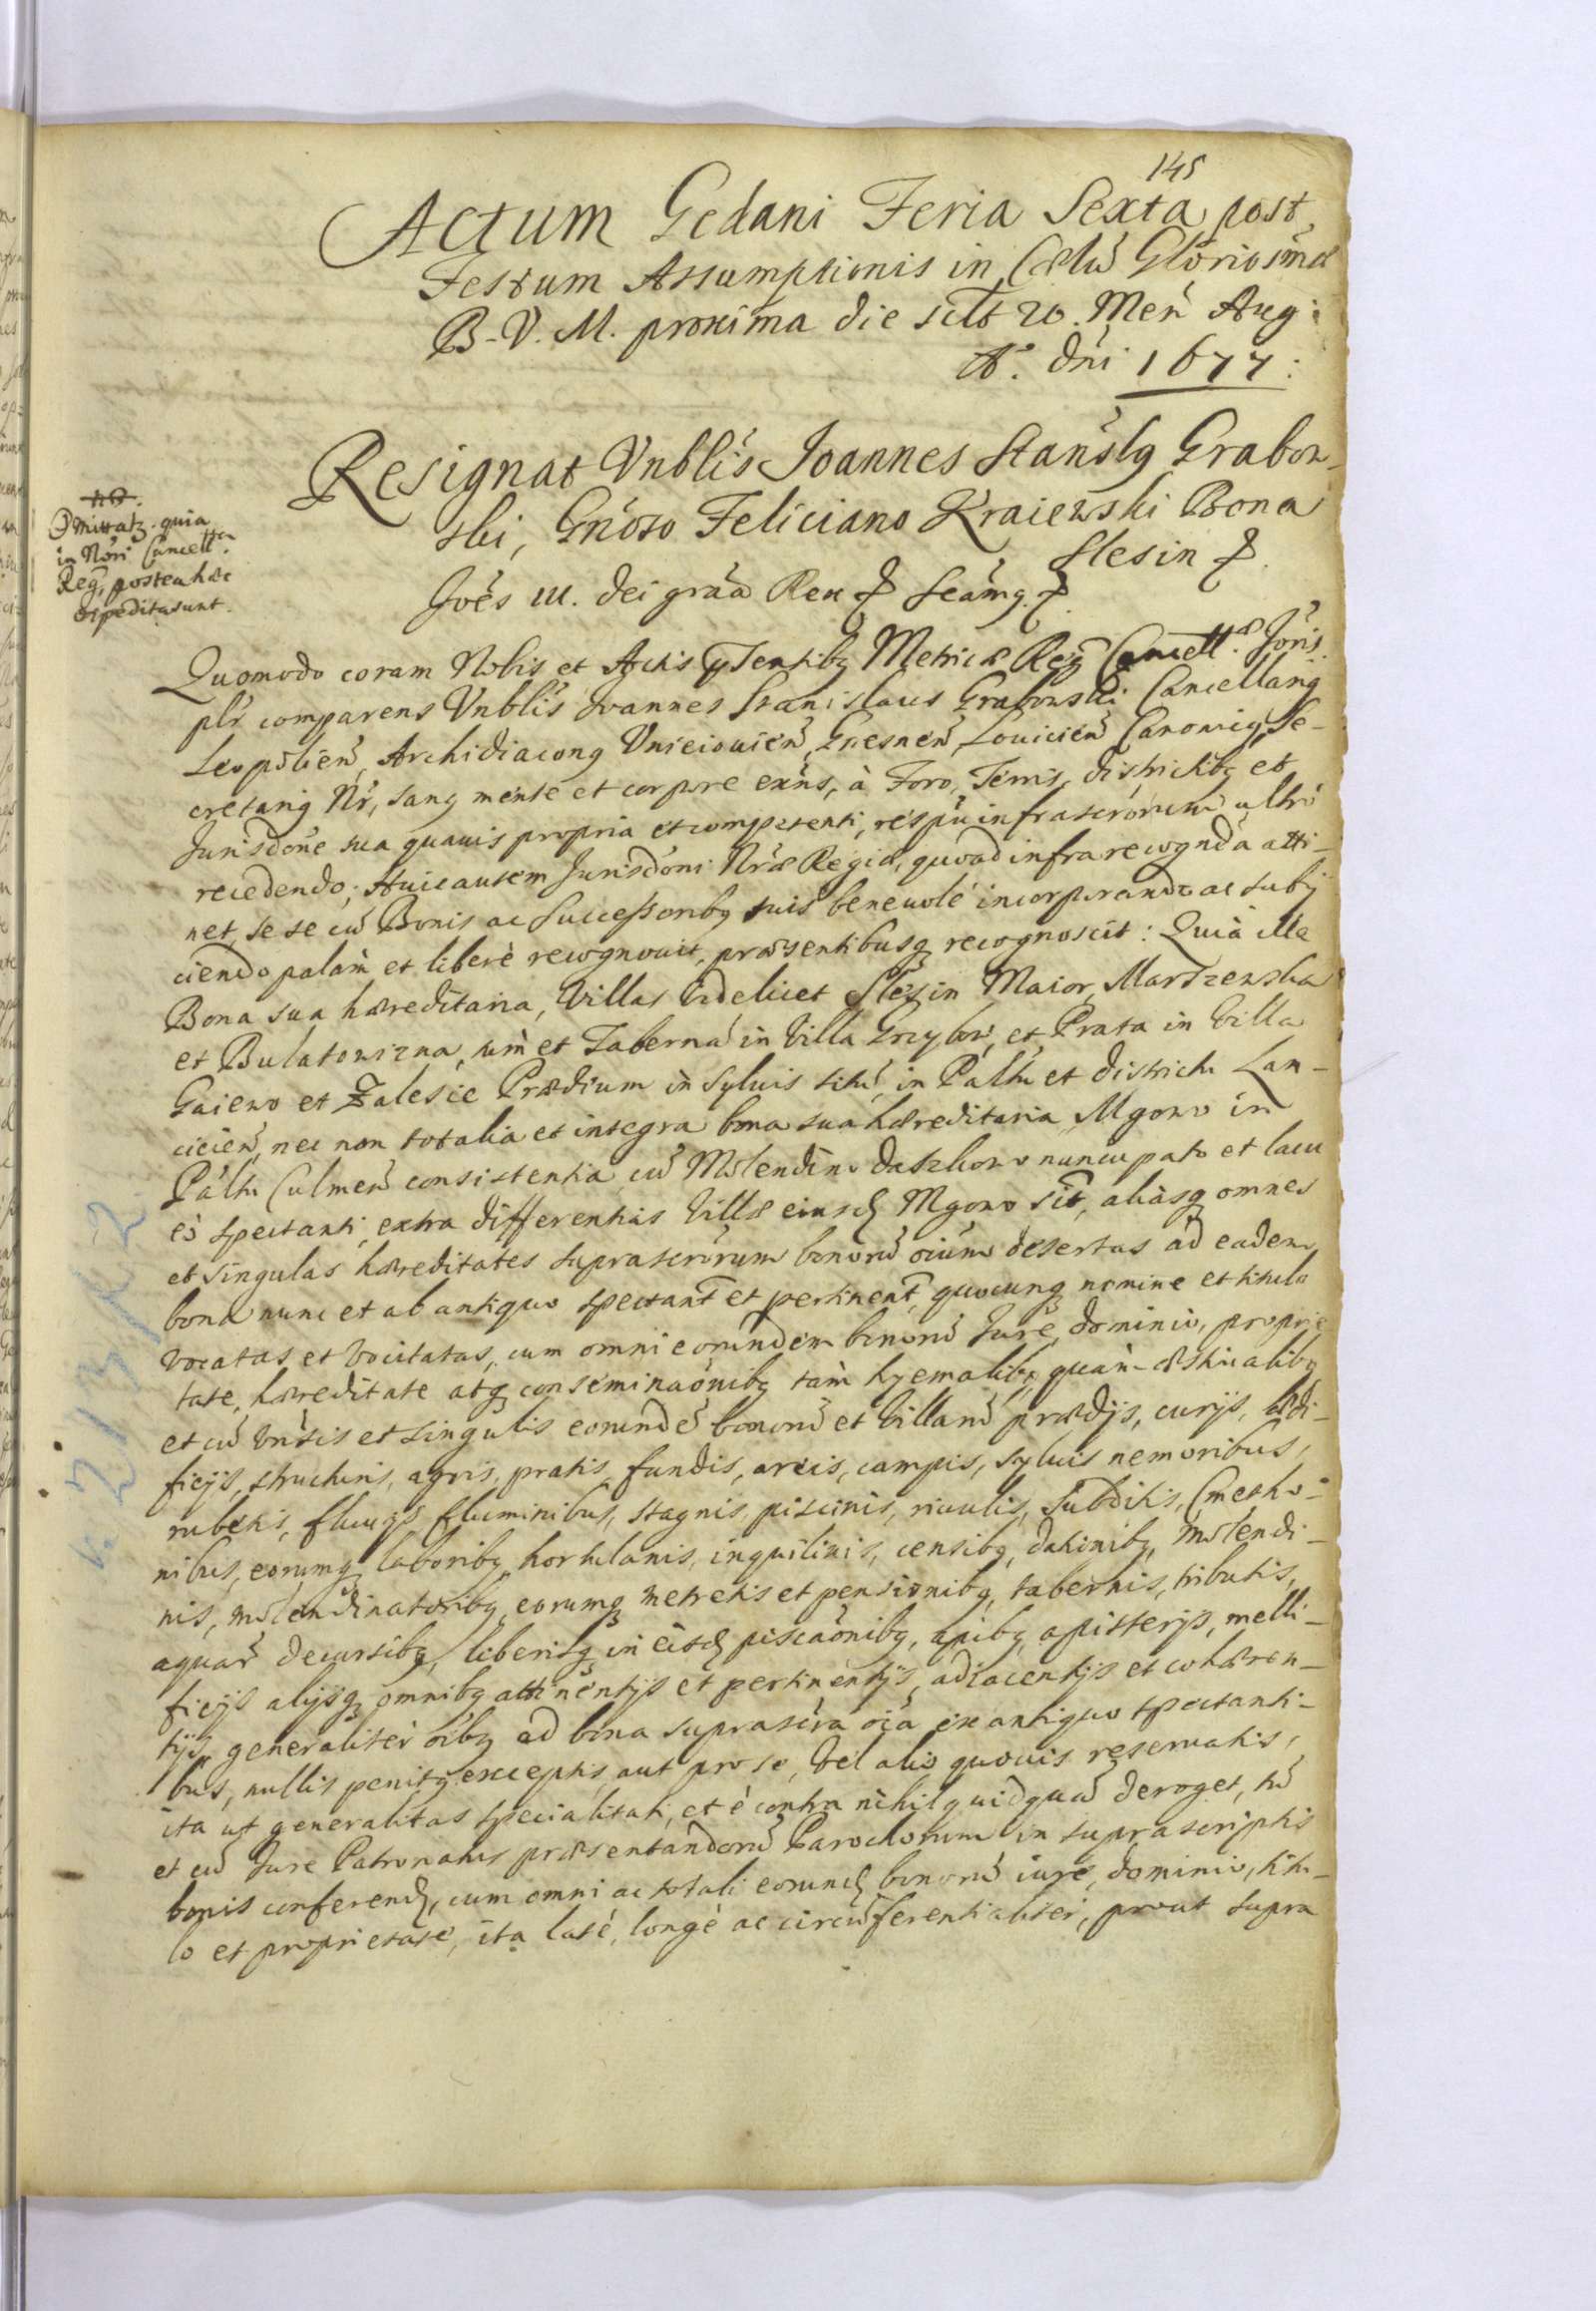 145
Actum Gedani Feria Sexta post
Festum Assumptionis in Cælũ Gloriosmæ
B. V. M. proxima die sclt 20. Meñ Aug:
Aº. dñi 1677:
Resignat Vnblis Joannes Stanslq Grabow-
ski, Gñoso Feliciano Kraiewski Bona
Slesin
Joes III. dei gra͂a Rex
Omittatz quia
in Nori Cancellra
Reg, postea hæc
expedita sunt.
Quomodo coram Nobis et Actis pñtentibq Metricæ Reg Cancellæ Joris
plr comparens Vnblis Joannes Stanislaus Grabowski Cancellariq
Leopolień, Archidiaconq Vnieiouień, Gnesneń, Louicień Canonicq, Se-
cretariq Nr, sanq mente et corpore exns, à Foro, Terris, districtibq et
Jurisdone sua quauis propria et competenti, respũ infrascrorum ultro
recedendo; Huic autem Jurisdoni Nræ Regiæ, quoad infra recognda atti-
net, se se cũ Bonis ac Successoribq suis beneuole incorporando ac subij
ciendo palàm et liberè recognouit, præsentibusq recognoscit: Quia ille
Bona sua hæreditaria, Villas videlicet Slesin Maior, Martzewska
et Bulatowizna, cum et Taberna in Villa Grzybow, et Prata in Villa
Gaiewo et Zalesie Prædium in Syluis sitũ in Paltu et districtu Lan-
cicień, nec non totalia et integra bona sua hæreditaria Mgowo in
Paltu Culmeń consistentia cũ Molendino daszkowo nuncupato et lacu
eò spectanti, extra differentias Villæ eiusd Mgowo sit, aliasq omnes
et singulas hæreditates suprascrorum bonorũ oium desertas ad eadem
bona nunc et ab antiquo spectant et pertinent, quocunq nomine et titulo
vocatas et vocitatas, cum omni eorundem bonorũ Jure, dominio, proprie
tate, hæreditate atq conseminaonibq tàm hyemalibq quàm æstiualibq
et cũ vnsis et singulis eorundẽ bonorũ et Villarũ prædijs, curijs, ædi-
ficijs, structuris, agris, pratis, fundis, areis, campis, syluis nemoribus,
rubetis, fluuijs fluminibus, stagnis, piscinis, riuulis, Subditis, Cmetho-
nibus, eorumq laboribq, hortulanis, inquilinis, censibq, dationibq, Molendi-
nis, molendinatoribq, eorumq metretis et pensionibq, tabernis, tributis,
aquar decursibq, liberisq in eisd piscaonibq, apibq, apisterijs, melli-
ficijs alijsq omnibq attinentijs et pertinentijs, adiacentijs et cohæren-
tijs, generaliter oibq ad bona suprascra oia ex antiquo spectanti-
bus, nullis penitq exceptis, aut pro se, vel alio quouis reseruatis,
ita ut generalitas specialitati, et è contra nihil quidquã deroget, tũ
et cũ Jure Patronatus præsentandorũ Parochorum in suprascriptis
bonis conferend, cum omni ac totali eorund bonorũ iure, dominio, titu-
lo et proprietate, ita latè, longè ac circũferentialiter, prout supra